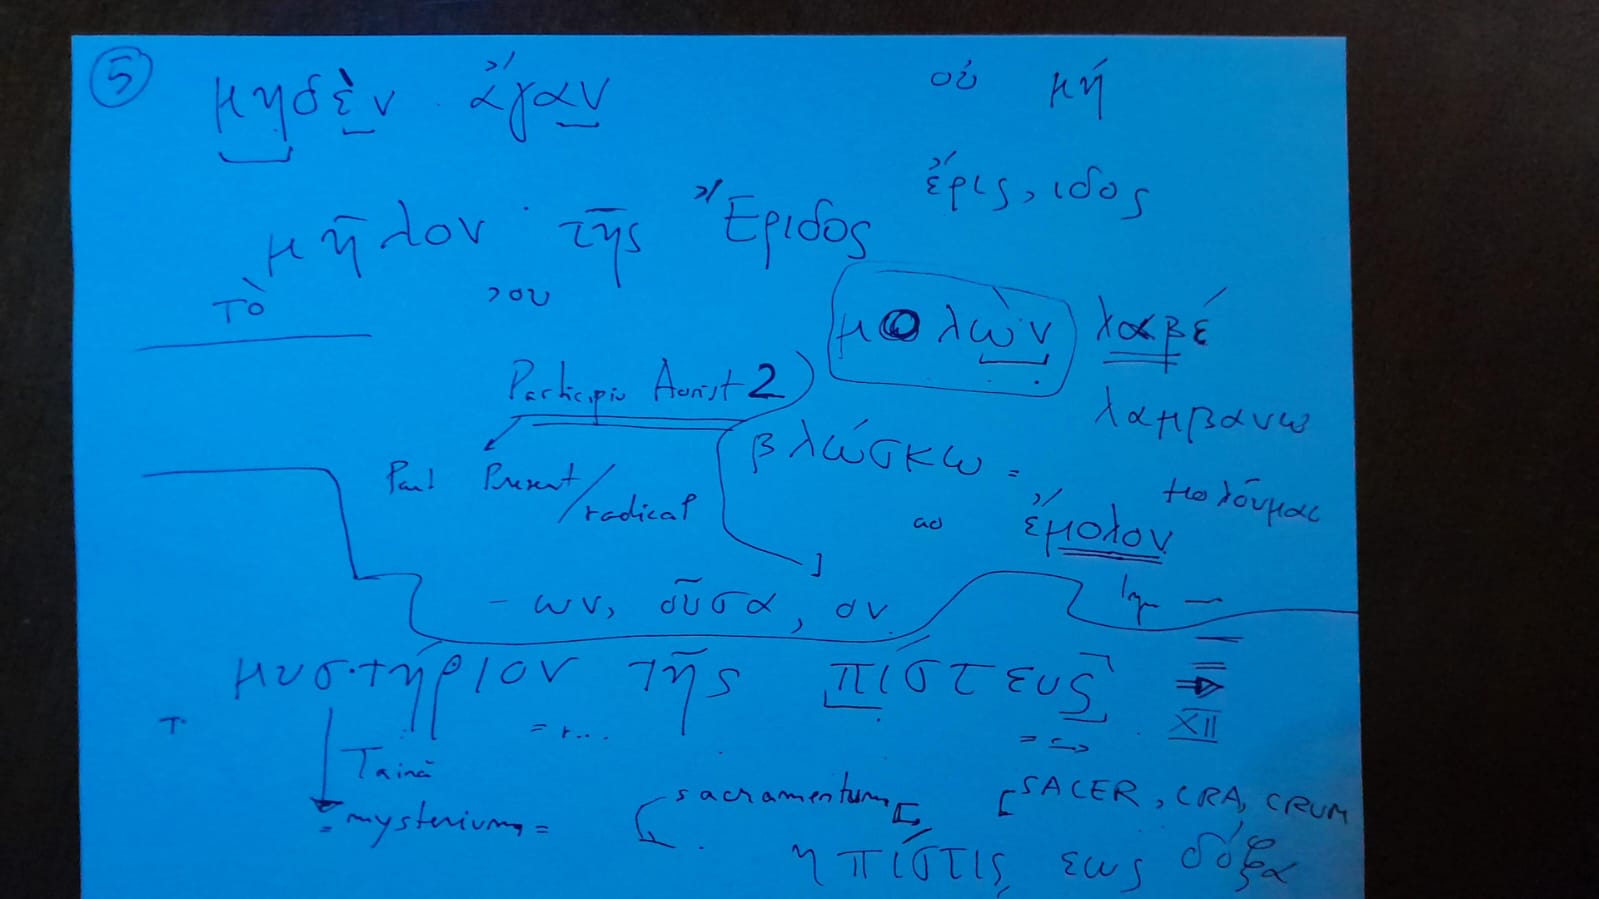 5
μηδὲν ἄγαν οὐ μή
ἔρις, ιδος
μῆλον τῆς Ἔριδος
τὸ ου
μολὼν λαβέ
Participiu Aorist 2 λαμβανω
βλώσκω =
Present / radical μολοῦμαι
ao ἔμολον
- ων, οῦσα, ον
μυστήριον τῆς πίστευς
XII
Taină
= mysterium = sacramentum SACER, CRA, CRUM
η πίστις, εως δόξα